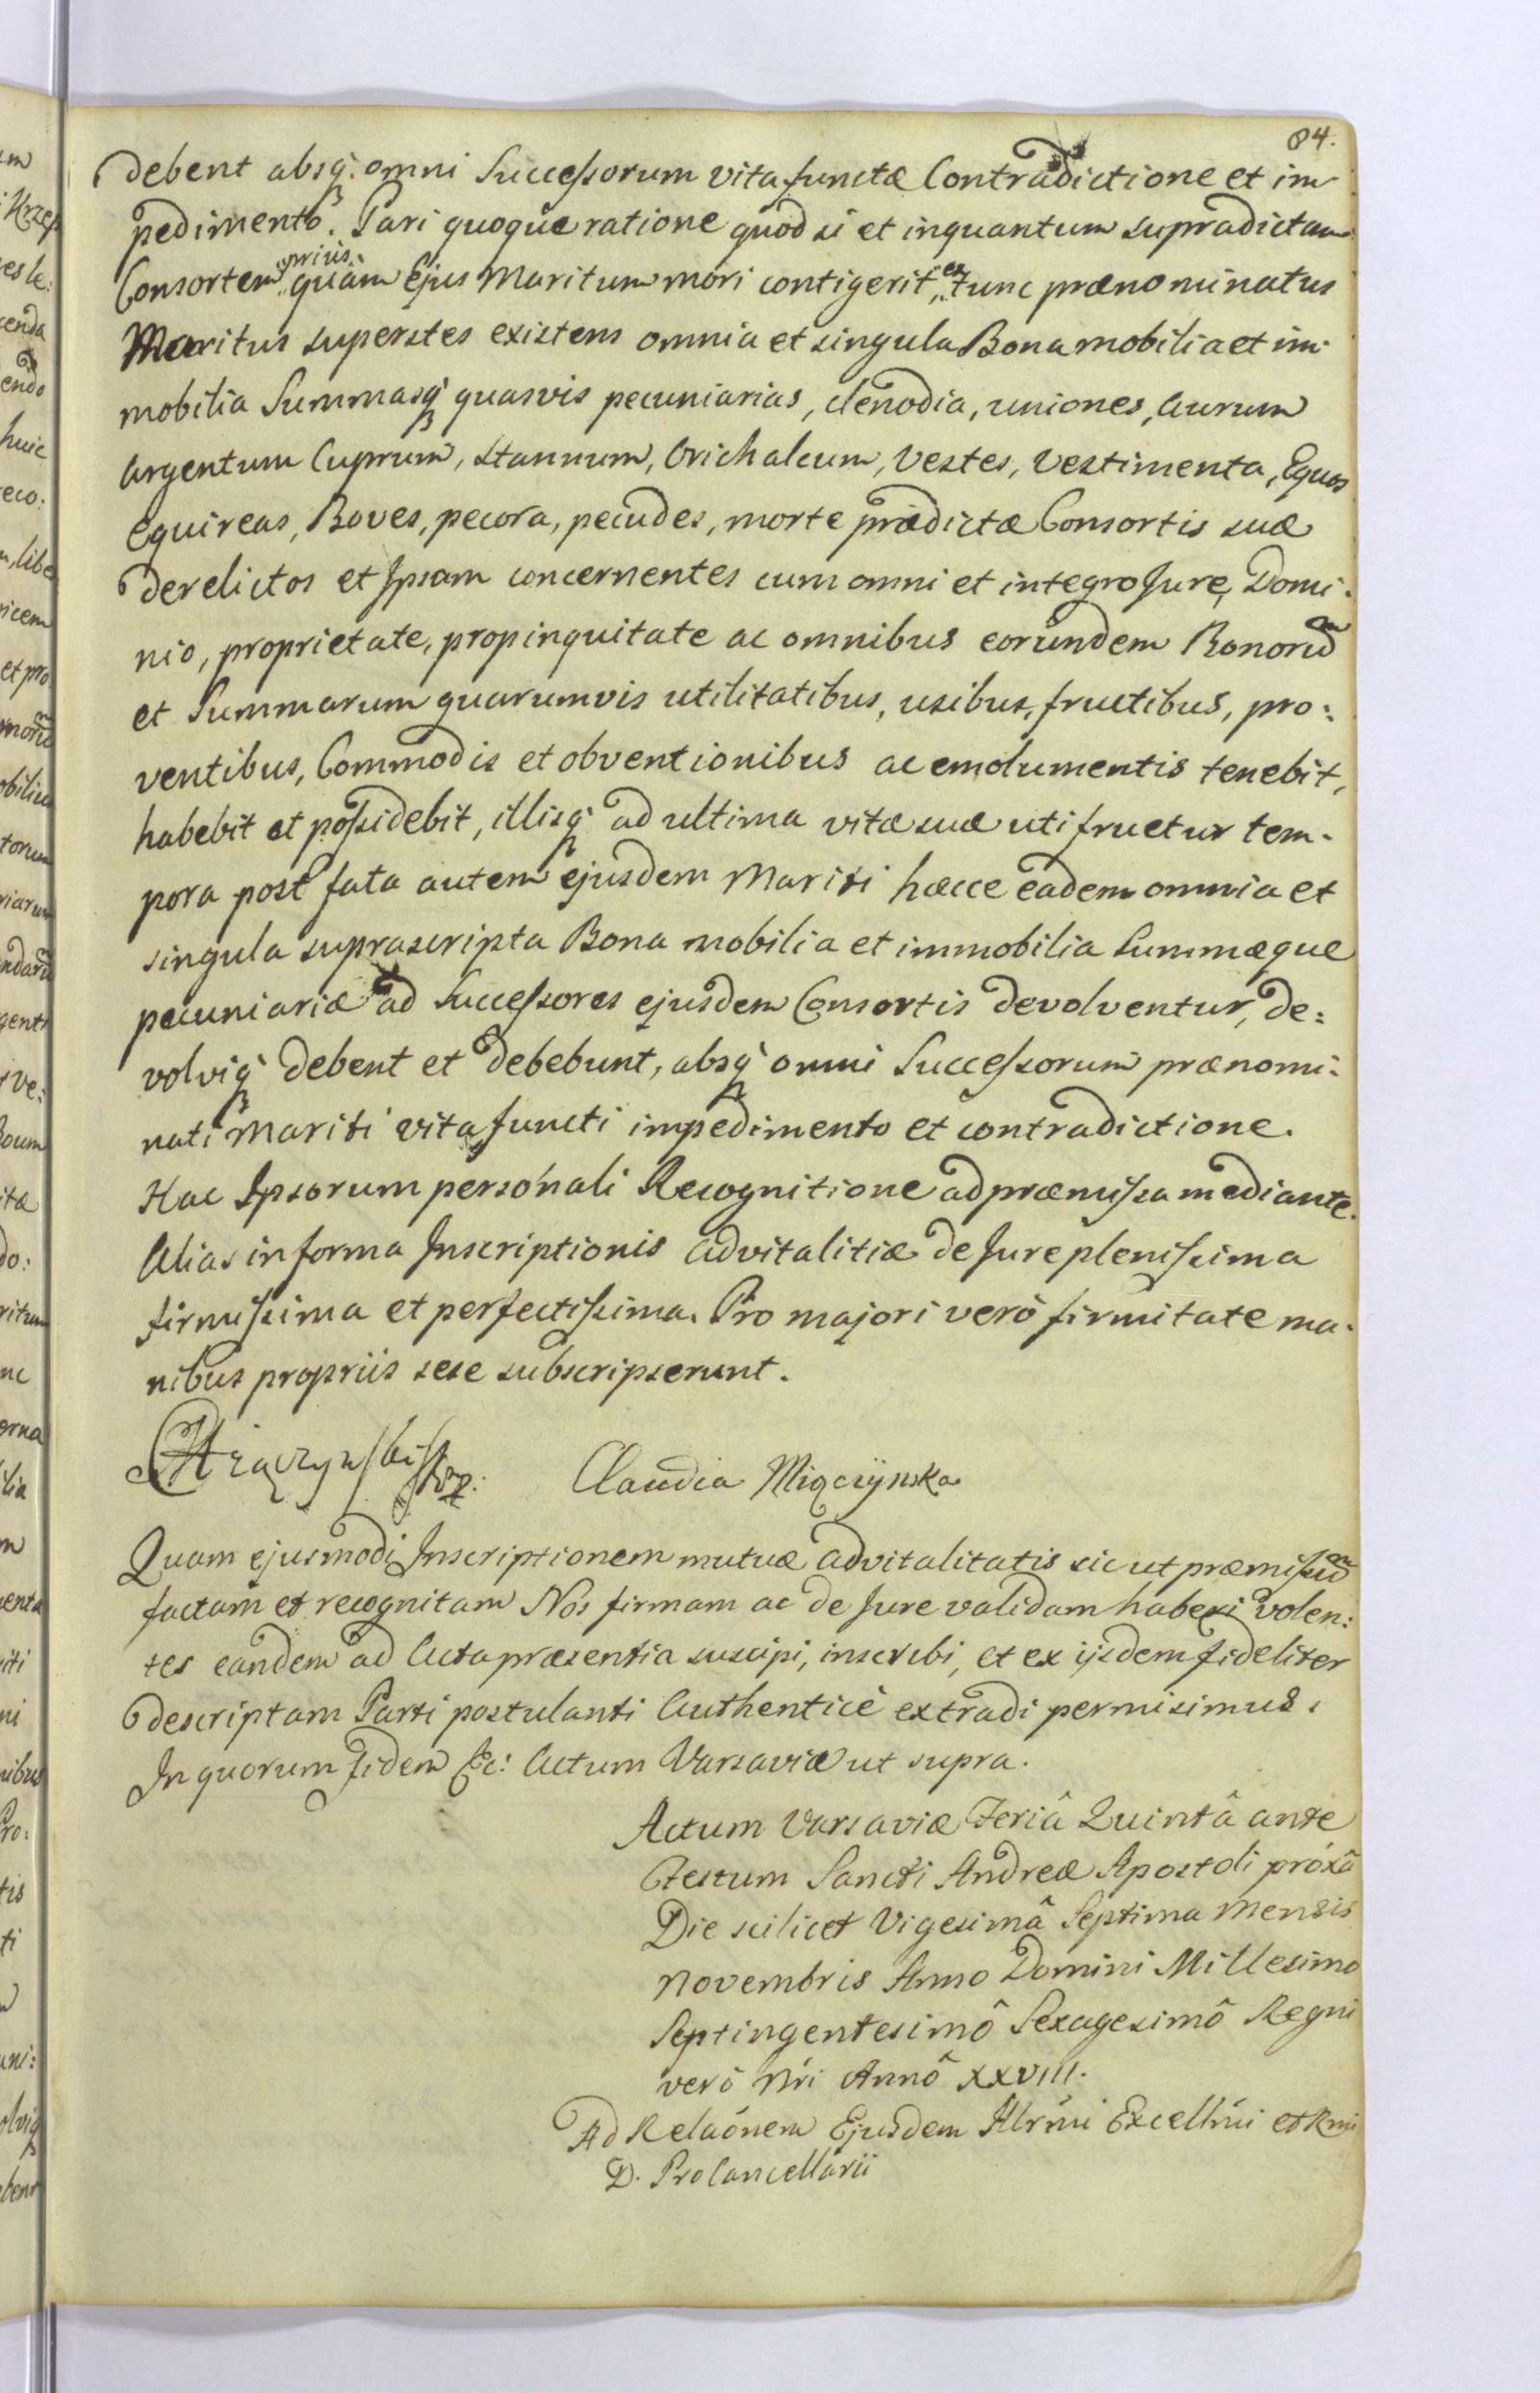 84.
debent absq́ omni Successorum vita functæ Contradictione et im
pedimento. Pari quoque ratione quod si et inquantum supradictam
Consortem prius quàm Ejus Maritum mori contigerit, ex tunc prænominatus
Maritus superstes existens omnia et singula Bona mobilia et im-
mobilia Summasq́ quasvis pecuniarias, clenodia, uniones, Aurum
Argentum Cuprum, Stannum, Orichalcum, Vestes, Vestimenta, Equos
Equireas, Boves, pecora, pecudes, morte prædictæ Consortis suæ
derelictos et Ipsam concernentes cum omni et integro Jure, Domi-
nio, proprietate, propinquitate ac omnibus eorundem Bonorũ
et Summarum quarumvis utilitatibus, usibus, fructibus, pro:
ventibus, Commodis et obventionibus ac emolumentis tenebit,
habebit et possidebit, illisq́ ad ultima vitæ suæ uti fruetur tem-
pora post fata autem ejusdem Mariti hæcce eadem omnia et
singula suprascripta Bona mobilia et immobilia Summæque
pecuniariæ ad Successores ejusdem Consortis devolventur, de:
volviq́ debent et debebunt, absq́ omni Successorum prænomi-
nati Mariti vita functi impedimento et contradictione.
Hac Ipsorum personali Recognitione ad præmissa mediante.
Alias in forma Inscriptionis advitalitiæ de Jure plenissima
firmissima et perfectissima. Pro majori verò firmitate ma-
nibus propriis sese subscripserunt.
Claudia Miączynska
Quam ejusmodi Inscriptionem mutuæ advitalitatis sic ut præmissũ
factam et recognitam Nos firmam ac de Jure validam haberi volen:
tes eandem ad Acta præsentia suscipi, inscribi, et ex ijsdem fideliter
descriptam Parti postulanti Authenticè extradi permisimus.
In quorum fidem &c: Actum Varsaviæ ut supra.
Actum Varsaviæ Feriâ Quintâ ante
Festum Sancti Andreæ Apostoli próxâ
Die scilicet Vigesimâ Septima Mensis
Novembris Anno Domini Millesimo
Septingentesimô Sexagesimô Regni
verò Nri Annô XXVIII.
Ad Relaónem Ejusdem Illrmi Excellmi et Rmi
D. ProCancellarii